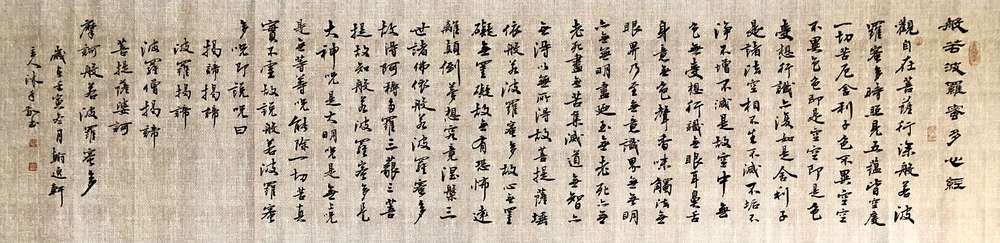 般若波羅蜜多心經
觀自在菩薩行深般若波
羅蜜多時照見五蘊皆空度
一切苦厄舍利子色不異空空
不異色色即是空空即是色
受想行識亦復如是舍利子
是諸法空相不生不滅不垢不
淨不增不減是故空中無
色無受想行識無眼耳鼻舌
身意無色聲香味觸法無
眼界乃至無意識界無無明
亦無無明盡乃至無老死亦無
老死盡無苦集滅道無智亦
無得以無所得故菩提薩埵
依般若波羅蜜多故心無罣
礙無罣礙故無有恐怖遠
離顛倒夢想究竟涅槃三
世諸佛依般若波羅蜜多
故得阿耨多羅三藐三菩
提故知般若波羅蜜多是
大神咒是大明咒是無上咒
是無等等咒能除一切苦真
實不虛故說般若波羅蜜
多咒即說咒曰
揭諦揭諦
波羅揭諦
波羅僧揭諦
菩提薩婆訶
摩訶般若波羅蜜多
歲在壬寅冬月翰逸軒
主人